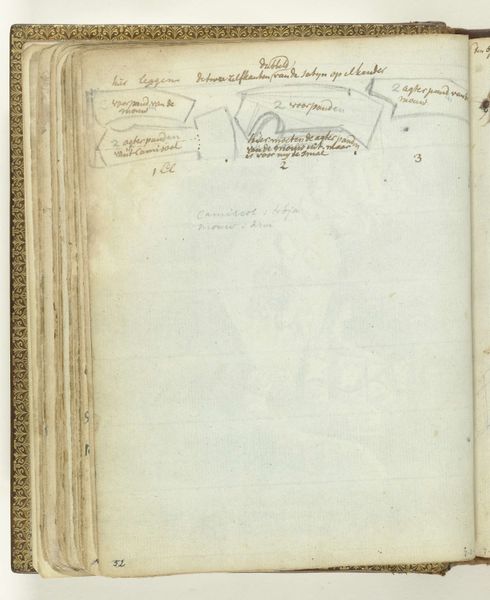 dubbeld
hier leggen de twee zelfkanten van de satyn op elkander
2 voorpand van de
mouw
2 voorpanden
2 agterpand van de
mouw
2 agterpanden
van't Camisool
hier moeten de agterpanden
van de mouw uit, maar
is voor my te smal
1 El
2
3
Camisool :
mouw :
52